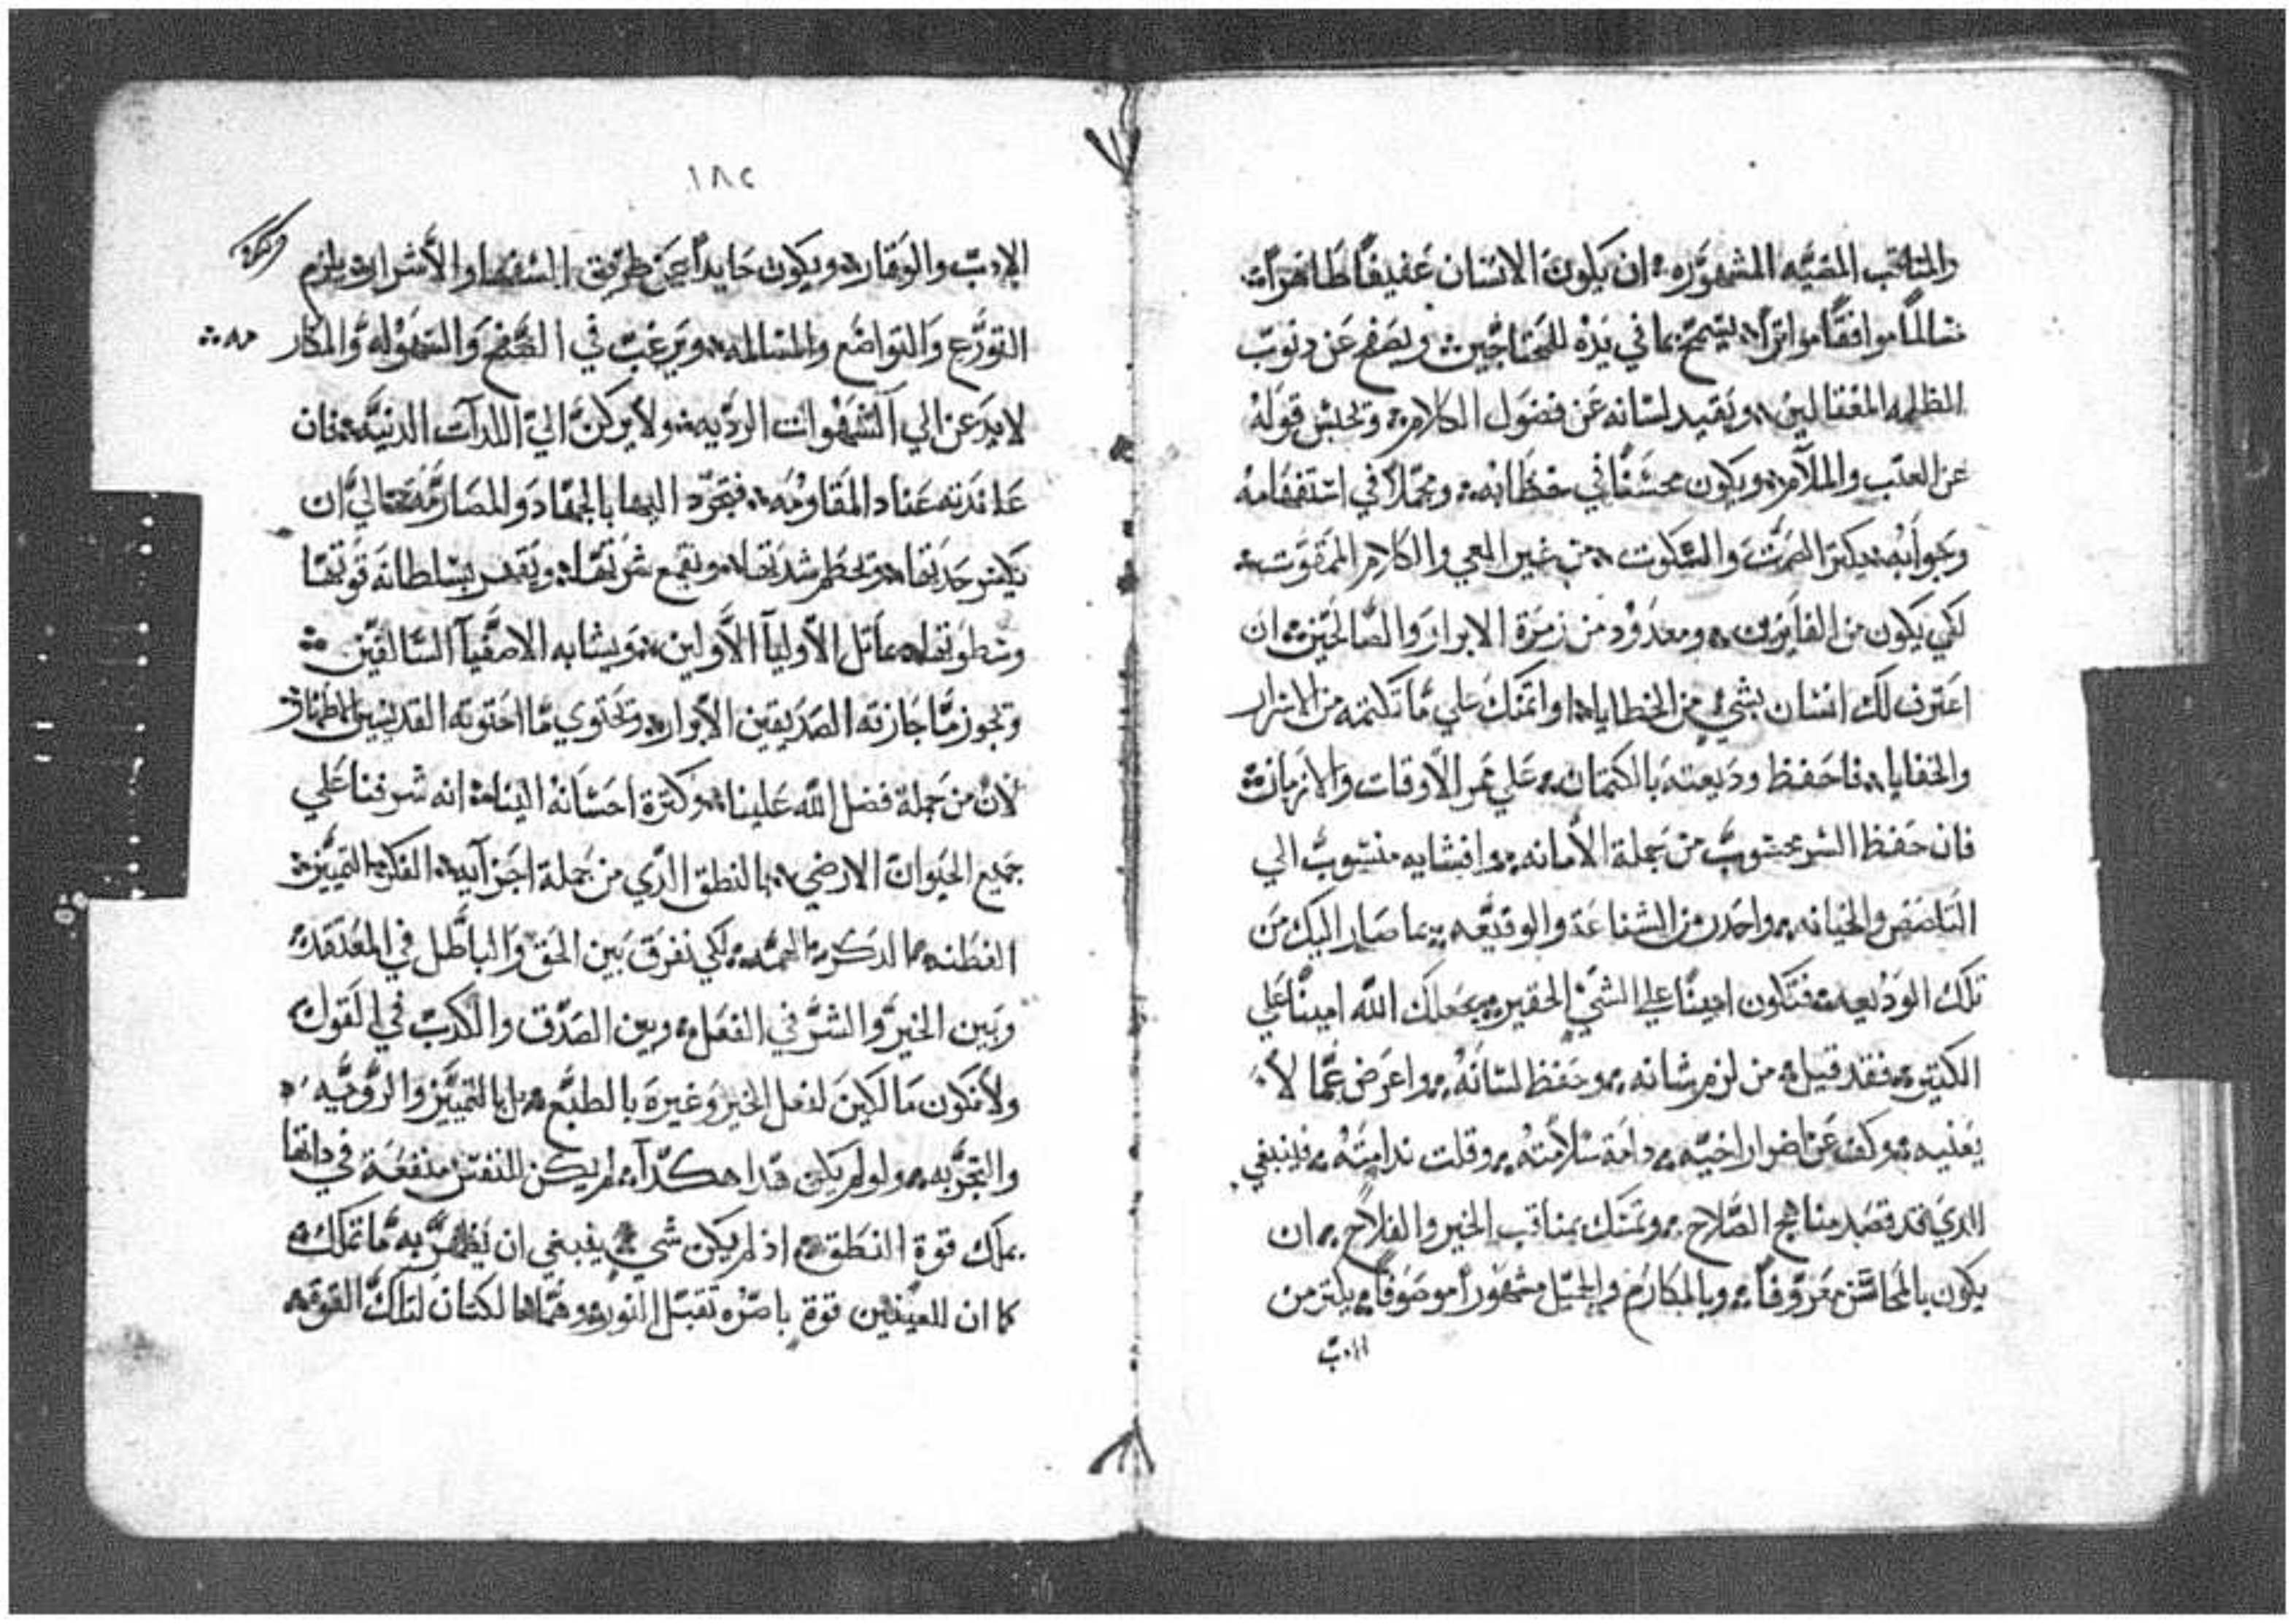 والمناقب المضيه المشهوره ان يكون الانسان عفيفاً طاهراً
سالماً موافقاً يسمح بما في يده للمحتاجين ويصفح عن دنوب
الظلمه ويقيد لسانه عن فضول الكلام وتحبس قوله
عن العتب والملآم ويكون محتشماً في خطابه ومجملاً في استفهامه
وجوابه يكتر الصمت والسكوت من غير العي والكلام الممقوت
لكي يكون من الفايزين ومعدود من زمرة الابرار والصالحين ان
اعترف لك انسان بشي من الخطايا او اتمنك علي ما تكتمه من الاسرار
والخفايا فاحفظ وديعته بالكتمان علي ممر الاوقات والازمان
فان حفظ السر محسوب من جملة الأمانه وافشايه منسوب الي
التلصص والخيانه واحدر من الشناعة والوقيعه بما صار اليك من
تلك الوديعه فتكون اميناً علي الشي الحقير يجعلك الله اميناً علي
الكتير فقد قيل من لزم شانه وحفظ لسانه واعرض عما لا
يعنيه وكف عن اضرار اخيه دامة سلامته وقلت ندامته فينبغي
الدي قد قصد مناهج الصلاح وتمسك بمناقب الخير والفلاح ان
يكون بالمحاسن معروفاً وبالمكارم والجميل مشهوراً موصوفاً يكتر من
الادب
١٨٢
الادب والوقار ويكون حايداً عن طريق السفها والأشرار ويلزم
التورع والتواضع والمسالمه ويرغب في الصفح والسهوله والمكار
مه
لا يدعن الي الشهوات الرديه ولا يركن الي اللدات الدنيه فان
عاندته عناد المقاومه فيتجرد اليها بالجهاد والمصارمه حتي الي ان
يكسر حدتها وتحطم شدتها ويقمع شرتها ويقهر بسلطانه قوتها
وسطوتها يماتل الأوليآ الأولين ويشابه الاصفيآ السالفين
وتجوز ما جازته الصديقين الأبرار وتحتوي ما احتوته القديسين الاطهار
لان من جملة فضل الله علينا وكترة احسانه الينا انه شرفنا علي
جميع الحيوان الارضي بالنطق الدي من جملة اجزآيه الفكر التمييز
الفطنه الدكر الهمه لكي نفرق بين الحق والباطل في المعتقد
وبين الخير والشر في الفعل وبين الصدق والكدب في القول
ولا نكون مالكين لفعل الخير وغيره بالطبع بل بالتمييز والرويه
والتجربه ولو لم يكن هدا هكدآ لم يكن للنفس منفعة في داتها
بملك قوة النطق اذ لم يكن شي ينبغي ان يظهر به ما تملك
كما ان للعينين قوة باصره تقبل النور وهما مالكتان لتلك القوه